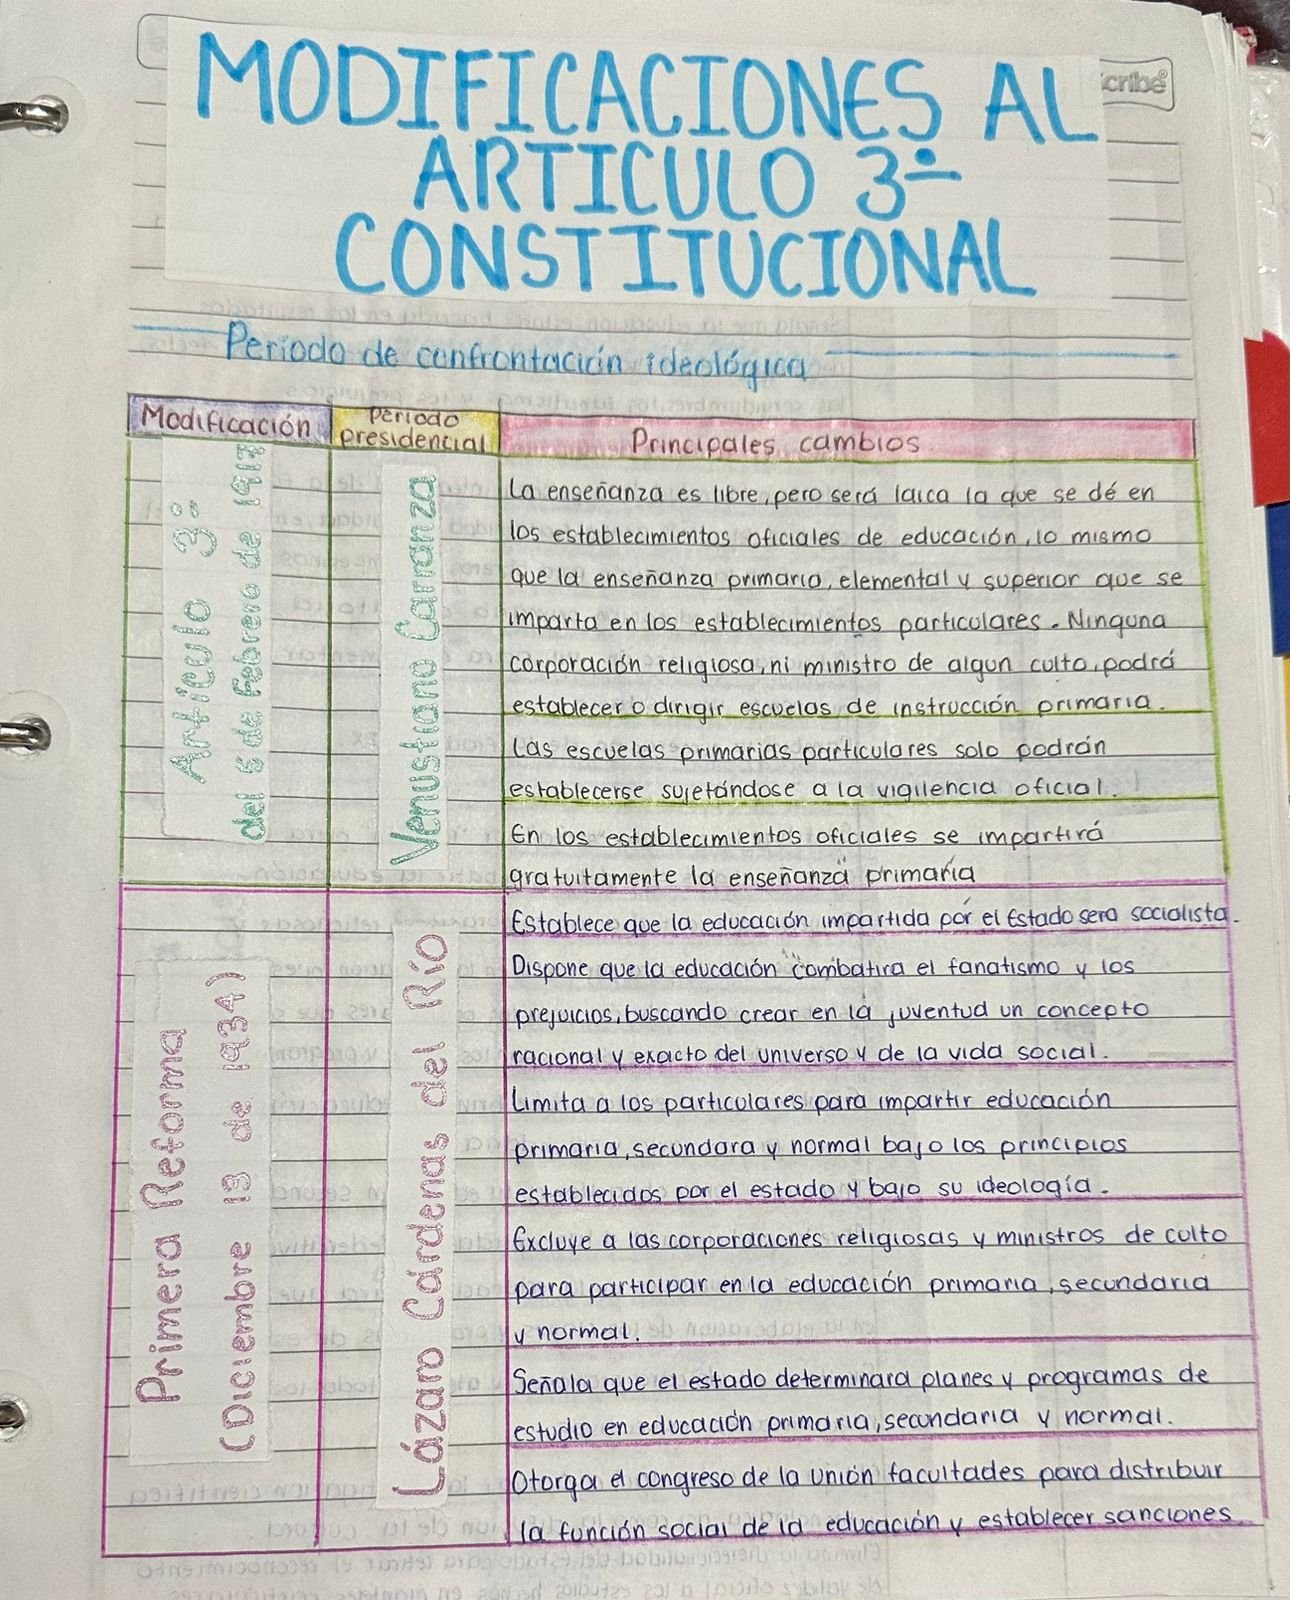 MODIFICACIONES AL
ARTICULO 3º
CONSTITUCIONAL
cribe
Periodo de confrontación ideológica
Modificación
Periodo
presidencial
Principales cambios
Artículo 3º
del 5 de Febrero de 1917
Venustiano Carranza
La enseñanza es libre, pero será laica la que se dé en
los establecimientos oficiales de educación, lo mismo
que la enseñanza primaria, elemental y superior que se
imparta en los establecimientos particulares. Ninguna
corporación religiosa, ni ministro de algun culto, podrá
establecer o dirigir escuelas de instrucción primaria.
Las escuelas primarias particulares solo podrán
establecerse sujetándose a la vigilencia oficial.
En los establecimientos oficiales se impartirá
gratuitamente la enseñanza primaria
Primera Reforma
(Diciembre 13 de 1934)
Lázaro Cárdenas del Río
Establece que la educación impartida por el Estado sera socialista.
Dispone que la educación combatira el fanatismo y los
prejuicios, buscando crear en la juventud un concepto
racional y exacto del universo y de la vida social.
Limita a los particulares para impartir educación
primaria, secundara y normal bajo los principios
establecidos por el estado y bajo su ideología.
Excluye a las corporaciones religiosas y ministros de culto
para participar en la educación primaria, secundaria
y normal.
Señala que el estado determinara planes y programas de
estudio en educación primaria, secundaria y normal.
Otorga el congreso de la unión facultades para distribuir
la función social de la educación y establecer sanciones.